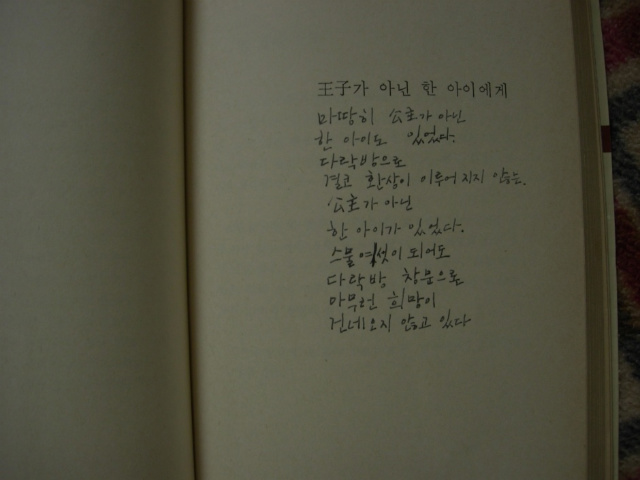 王子가 아닌 한 아이에게
마땅히 公主가 아닌
한 아이도 있었다.
다락방으로
결코 환상이 이루어 지지 않는.
公主가 아닌
한 아이가 있었다.
스물여섯이 되어도
다락방 창문으로
아무런 희망이
건네오지 않고 있다